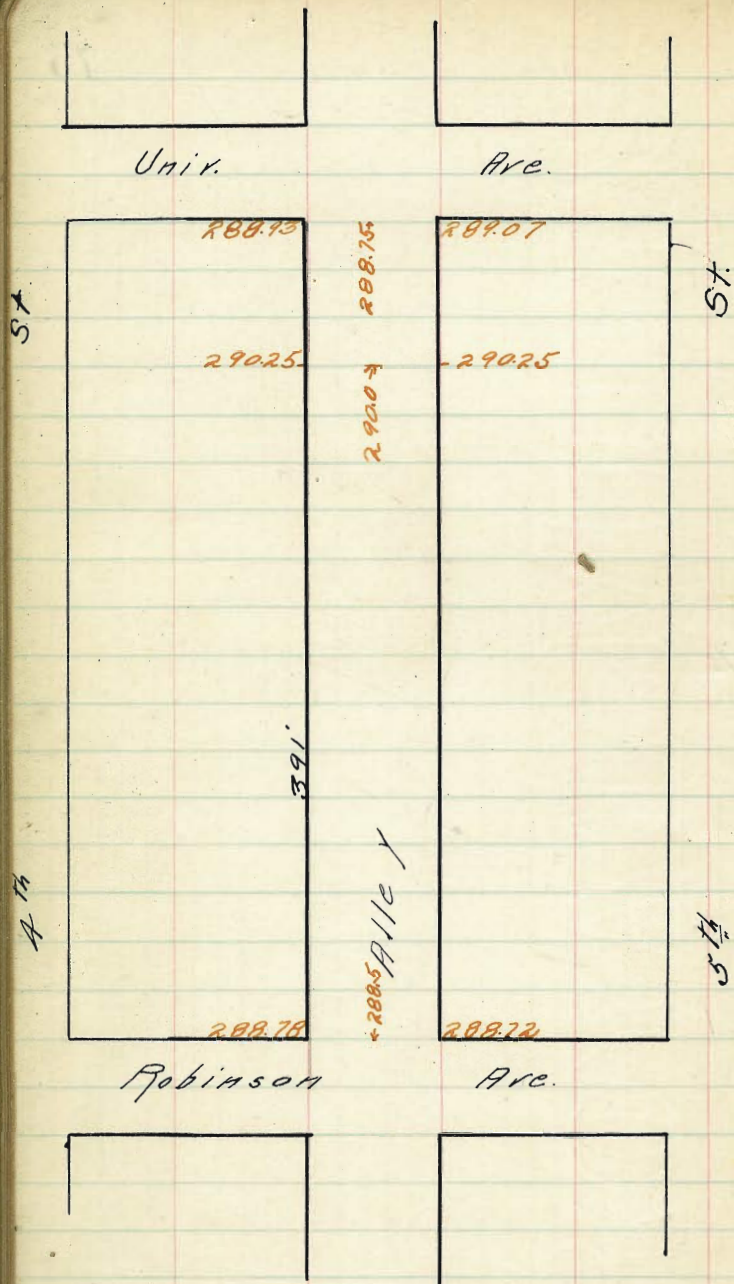 Univ. Ave.
288.93 288.75 289.07
St. St.
290.25 290.0 290.25
391'
Alley
4th 5th
288.78 288.5 288.72
Robinson Ave.